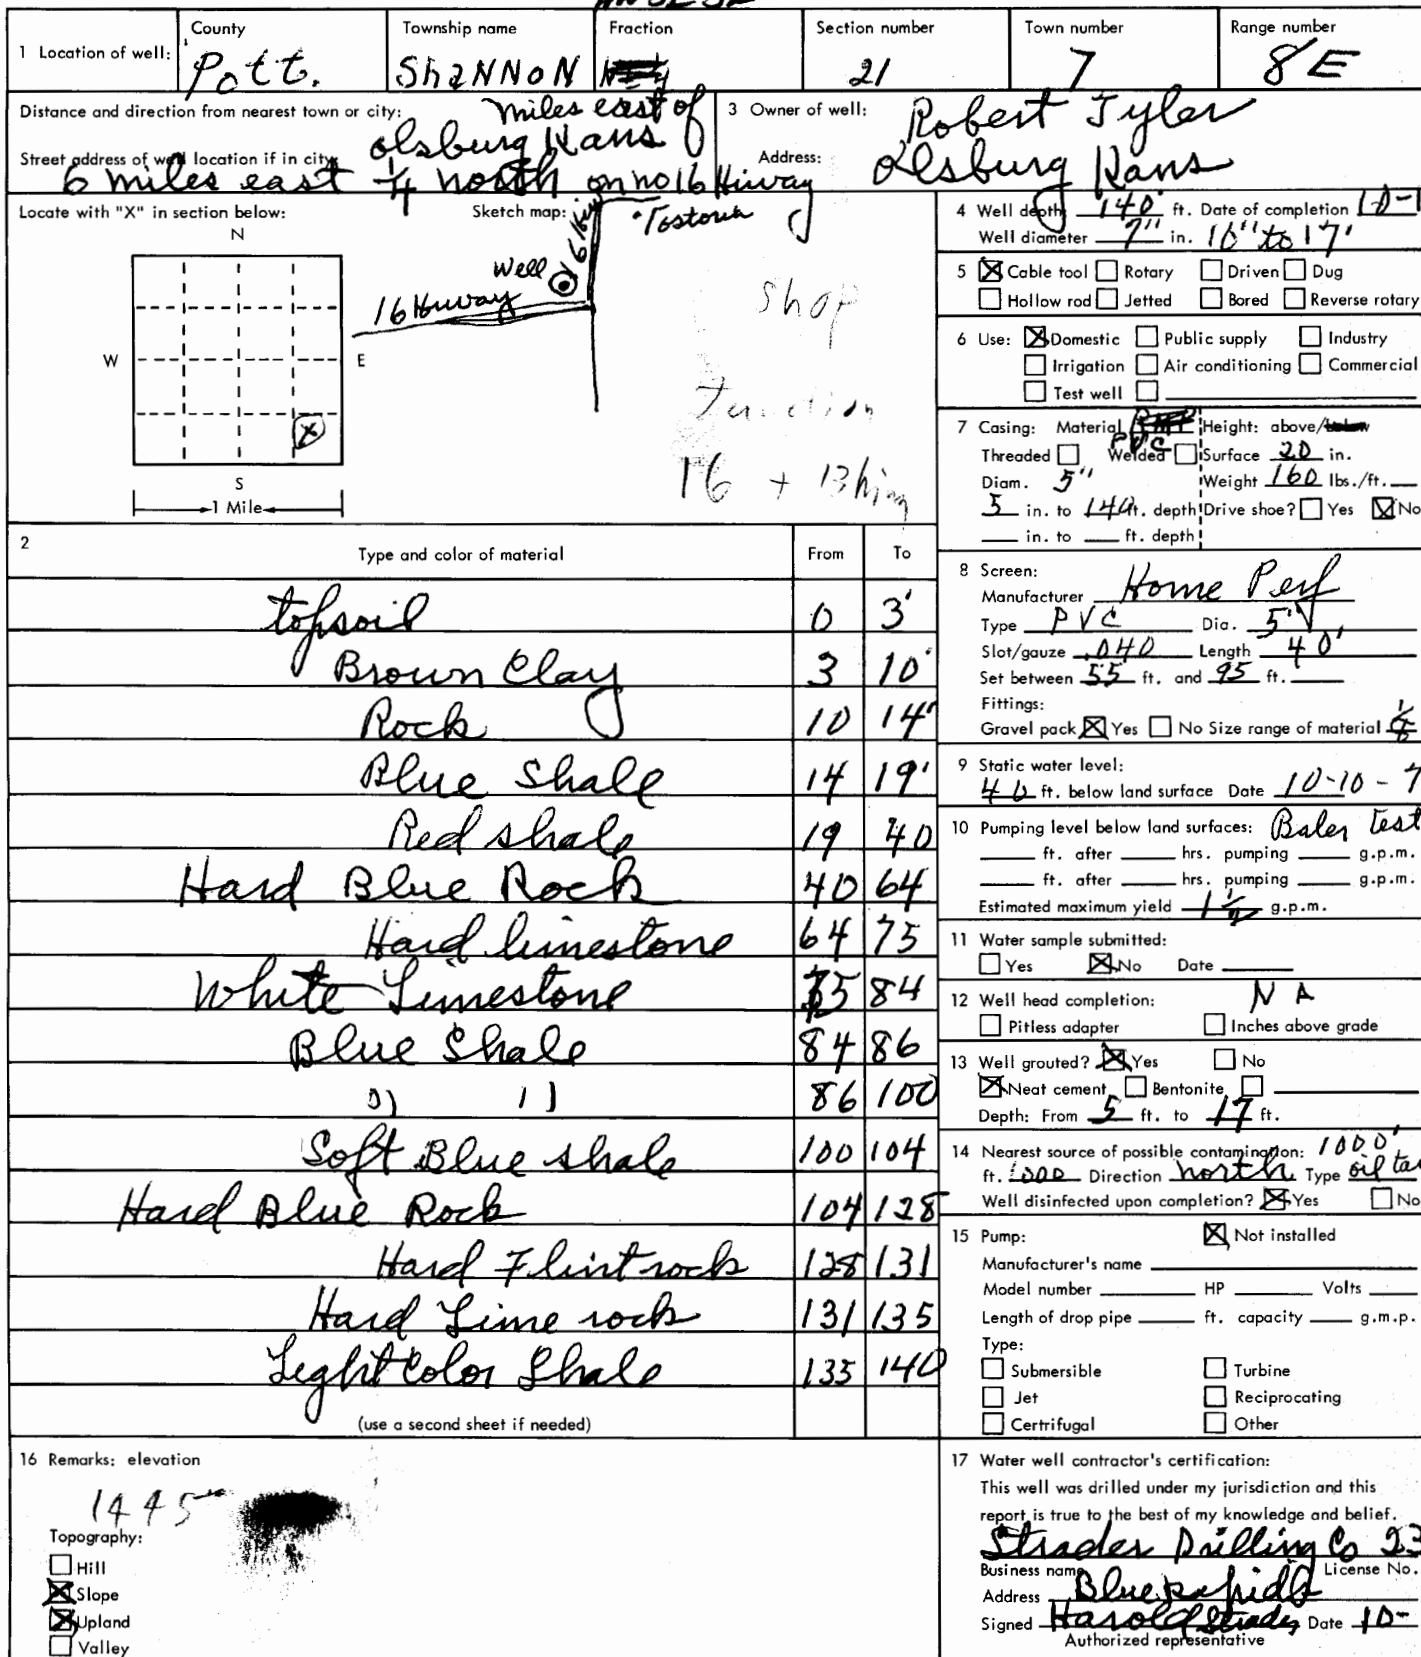 County Township name Fraction Section number Town number Range number
1 Location of well: Pott. ShaNNoN 21 7 8E
Distance and direction from nearest town or city: miles east of
Olsburg Kans
Street address of well location if in city:
6 miles east 1/4 north on no 16 Hiway
3 Owner of well: Robert Tyler
Address: Olsburg Kans
Locate with "X" in section below:
N
W E
X
S
1 Mile
Sketch map:
16 Hiway
Tostoria
Well
16 Huway
Shop
Junction
16 + 13 hiway
4 Well depth 140' ft. Date of completion 10-1
Well diameter 7" in. 10" to 17'
5 Cable tool Rotary Driven Dug
Hollow rod Jetted Bored Reverse rotary
6 Use: Domestic Public supply Industry
Irrigation Air conditioning Commercial
Test well
7 Casing: Material PVC Height: above/below
Threaded Welded Surface 20 in.
Diam. 5" Weight 160 lbs./ft.
5 in. to 140 ft. depth Drive shoe? Yes No
in. to ft. depth
2 Type and color of material From To
topsoil 0 3'
Brown Clay 3 10'
Rock 10 14'
Blue Shale 14 19'
Red shale 19 40
Hard Blue Rock 40 64
Hard limestone 64 75
White Limestone 75 84
Blue Shale 84 86
" " 86 100
Soft Blue shale 100 104
Hard Blue Rock 104 128
Hard Flint rock 128 131
Hard Lime rock 131 135
Light Color Shale 135 140
(use a second sheet if needed)
8 Screen:
Manufacturer Home Perf
Type PVC Dia. 5"
Slot/gauze .040 Length 40'
Set between 55 ft. and 95 ft.
Fittings:
Gravel pack Yes No Size range of material
9 Static water level:
40 ft. below land surface Date 10-10-7
10 Pumping level below land surfaces: Baler test
ft. after hrs. pumping g.p.m.
ft. after hrs. pumping g.p.m.
Estimated maximum yield 1 1/2 g.p.m.
11 Water sample submitted:
Yes No Date
12 Well head completion: NA
Pitless adapter Inches above grade
13 Well grouted? Yes No
Neat cement Bentonite
Depth: From 5 ft. to 17 ft.
14 Nearest source of possible contamination: 1000'
ft. 1000 Direction north Type oil tan
Well disinfected upon completion? Yes No
15 Pump: Not installed
Manufacturer's name
Model number HP Volts
Length of drop pipe ft. capacity g.m.p.
Type:
Submersible Turbine
Jet Reciprocating
Certrifugal Other
16 Remarks: elevation
1445
Topography:
Hill
Slope
Upland
Valley
17 Water well contractor's certification:
This well was drilled under my jurisdiction and this
report is true to the best of my knowledge and belief.
Strader Drilling Co 23
Business name License No.
Address Blue Rapids
Signed Harold Strader Date 10-
Authorized representative